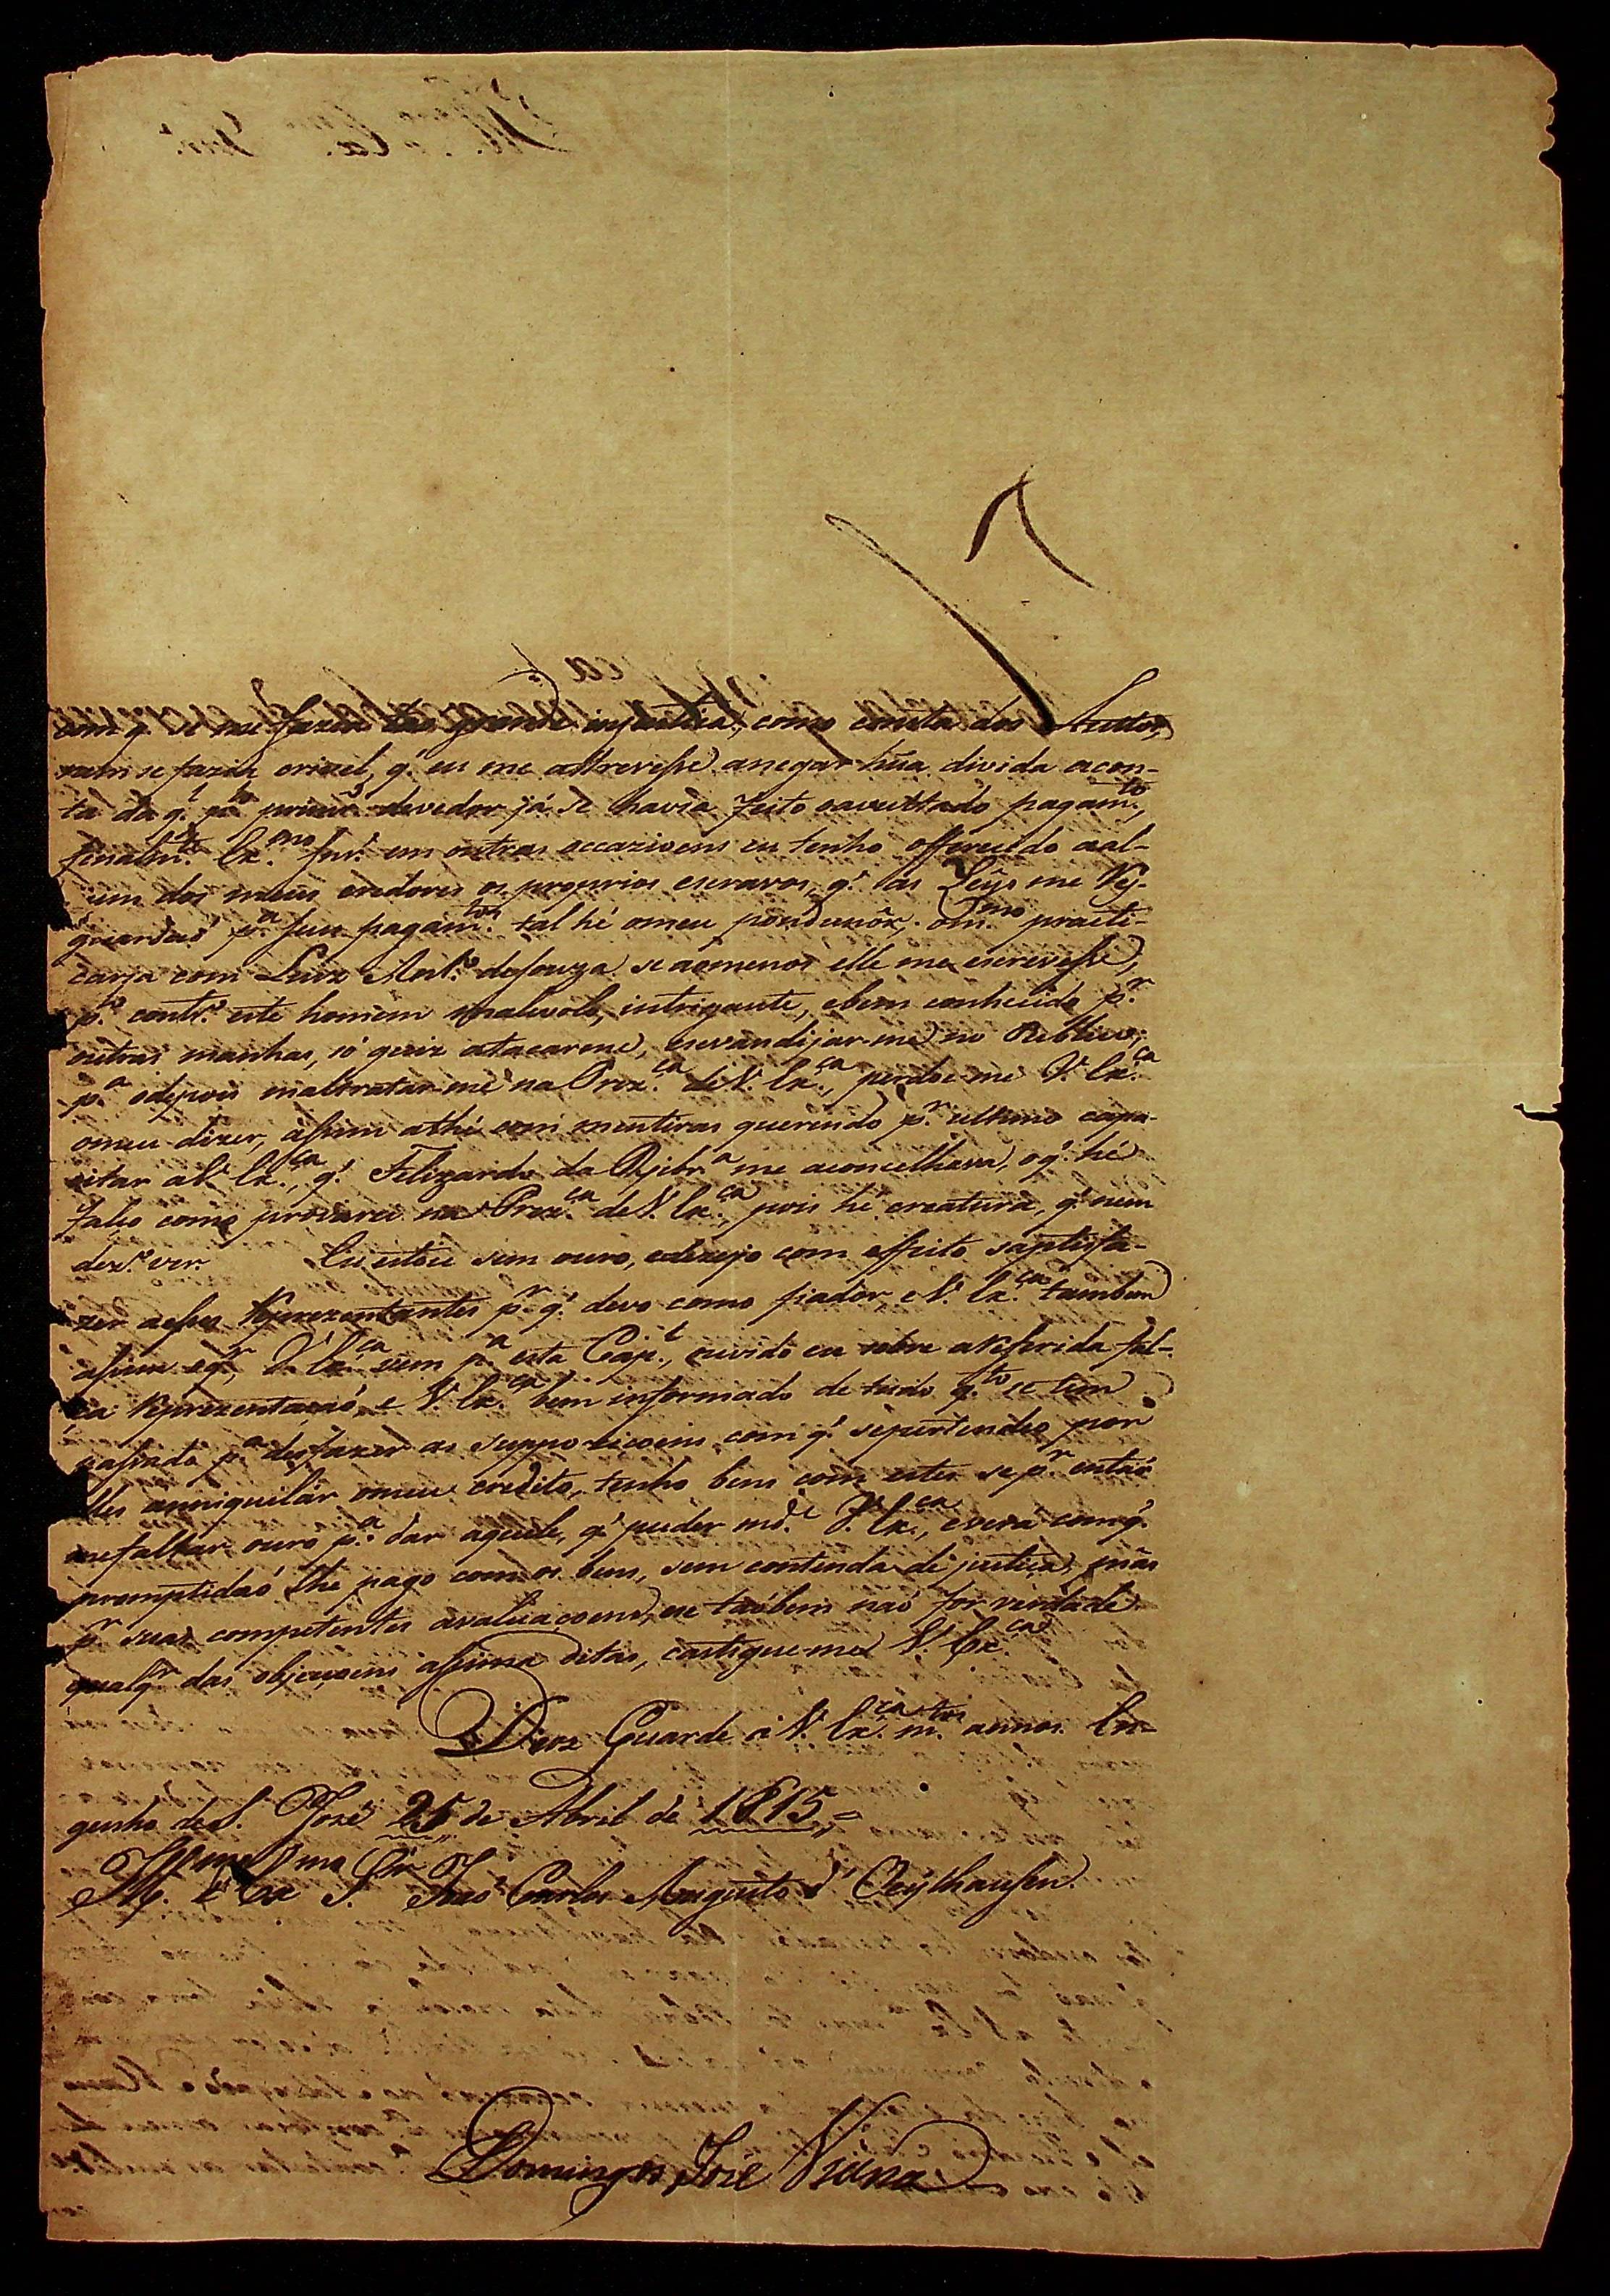 com q. se me fazia tao grande injustiça, como consta dos Auttos,
nem se fazia crivel, q.' eu me attrevesse anegar hũa divida acon-
ta da q.l p.lo prim.ro devedor já se havia feito oavultado pagam.to,
finalm.te Ex.mo Snr.' em outras occazioens eu tenho offerecido aal-
um dos meus credores os proprios escravos, q.' as Leys me
guardaõ p.a seu pagam.to tal hé omeu pondunôr, o m.mo practi-
caria com Luiz Ant.o deSouza se aomenos elle me escrevesse;
p.lo contr.o este homem malevolo, intrigante, ebem conhecido p.r
outras manhas, só quiz atacarme, esevandijar-me no Publico;
p.a odepois maltratar-me na Prez.ca de V. Ex.ca, perdoe-me V. Ex.ca
omeu dizer, assim athé com mentiras querendo p.r ultimo capa-
citar aV. Ex.ca, q.' Felizardo da Ribr.a me aconcelhava, oq.' hé
falço como provarei na Prez.ca deV. Ex.ca, pois hé creatura, q.' nem
dez.o ver. Eu estou sem ouro, edezejo com effeito saptisfa-
zer aesses Reprezentantes p.r q.' devo como fiador, e V. Ex.ca tambem
assim oq.r, V. Ex.ca vem p.a esta Cap.l, ouvido eu sobre aReferida fal-
ça Reprezentaçaõ, e V. Ex.ca bem informado de tudo q.to se tem
passado p.a desfazer as suppoziçoens, com q.' sepertendeo por
elles anniquilár omeu credito, tenho bens com estes se p.r entaõ
mefaltar ouro p.a dar aquele, q.' puder md.e V. Ex.ca, everá comq.'
promptidaõ lhe pago comos bens, sem contenda de justiça, mâs
p.r suas competentes avaliaçoens, ese taõbem naõ for verdade
qualq.r das objeçoens assima ditas, castigue-me V. Ex.ca
Deos Guarde á V. Ex.ca m.tos annos En-
genho deS. José 25 de Abril de 1815,,=
Ill.mo e Ex.mo S.nr Joaõ Carlos Augusto d' Oeÿnhausen.
Domingos José Vieira